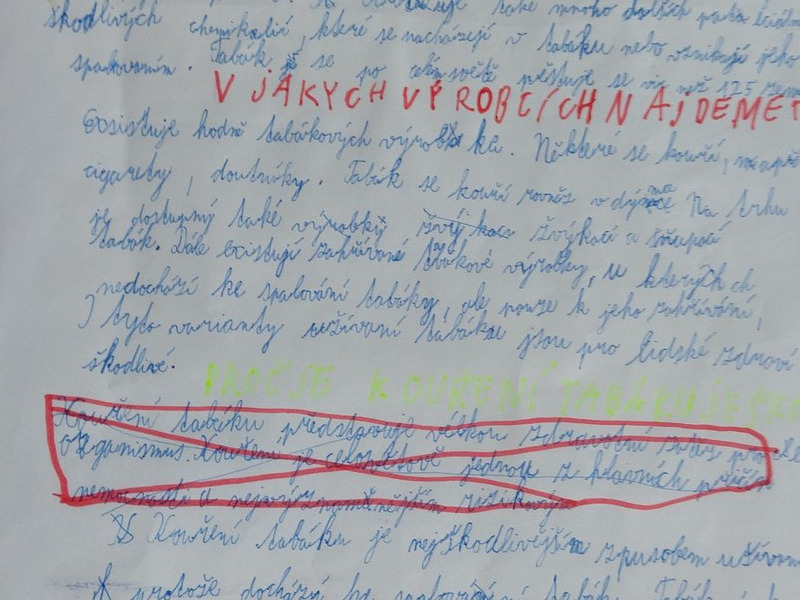 také mnoho dalších
škodlivých chemikálií, které se nacházejí v tabáku nebo vznikají jeho
spalováním. Tabák je se po celém světě pěstuje se víc než 125
V JAKYCH VÝROBCÍCH NAJDEME
Exsistuje hodně tabákových výrob ků. Některé se kouří, např
cigarety, doutníky. Tabák se kouří rovněž v dýmce Na trhu
je dostupný také výrobky žvýkací a šňupací
tabák. Dále existují zahřívané tabákové výrobky, u kterých
nedochází ke spalování tabáky, ale pouze k jeho zahřívání,
I tyto varianty užívaní tabáku jsou pro lidské zdraví
škodlivé.
PROČ JE KOUŘENÍ TABÁKU
Kouření tabáku představuje velkou zdravotní zátěž pro
organismus. Kouření je celosvětově jednou z hlavních příčin
nemocnosti a nejvýznamnějším rizikovým
Kouření tabáku je nejškodlivějším způsobem užívaní
protože dochází ke spalování tabák.